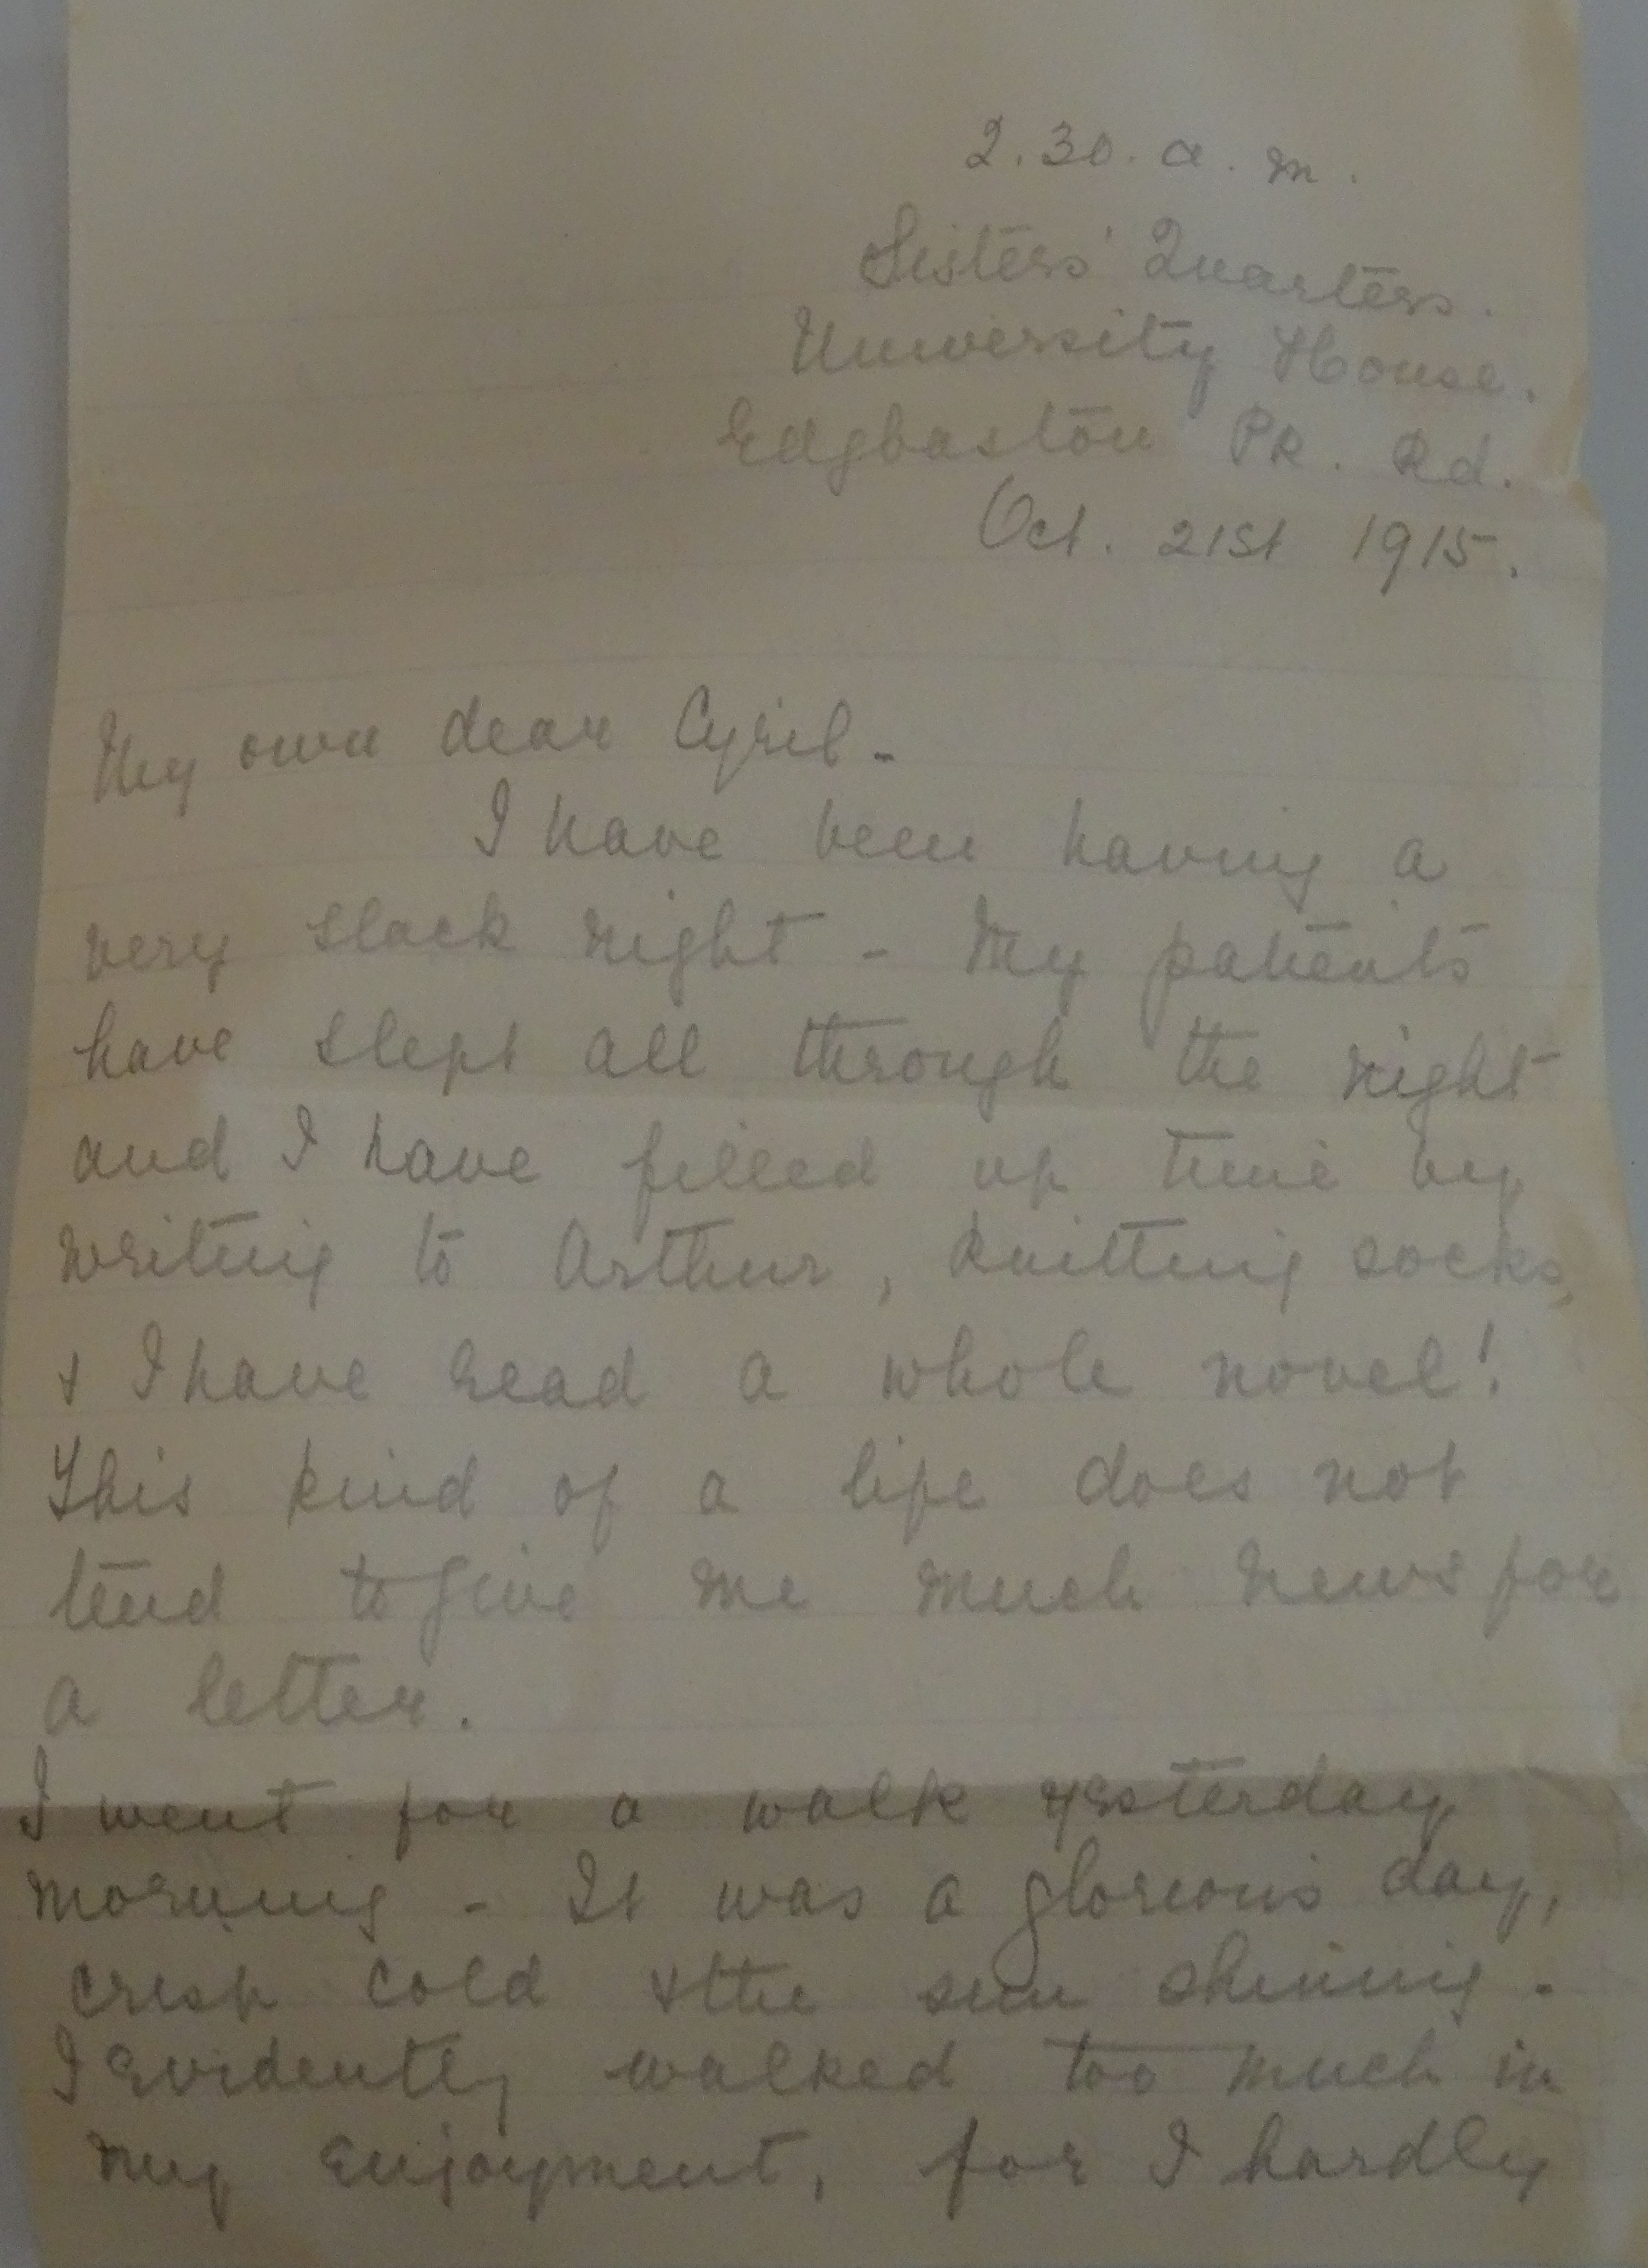 2.30. a.m.
Sisters' Quarters.
University House.
Edgbaston Pk. Rd.
Oct. 21st 1915.
My own dear Cyril -
I have been having a
very slack night - My patients
have slept all through the night
and I have filled up time by
writing to Arthur, knitting socks,
& I have read a whole novel!
This kind of a life does not
tend to give me much news for
a letter.
I went for a walk yesterday
morning - It was a glorious day,
crisp cold & the sun shining -
I evidently walked too much in
my enjoyment, for I hardly